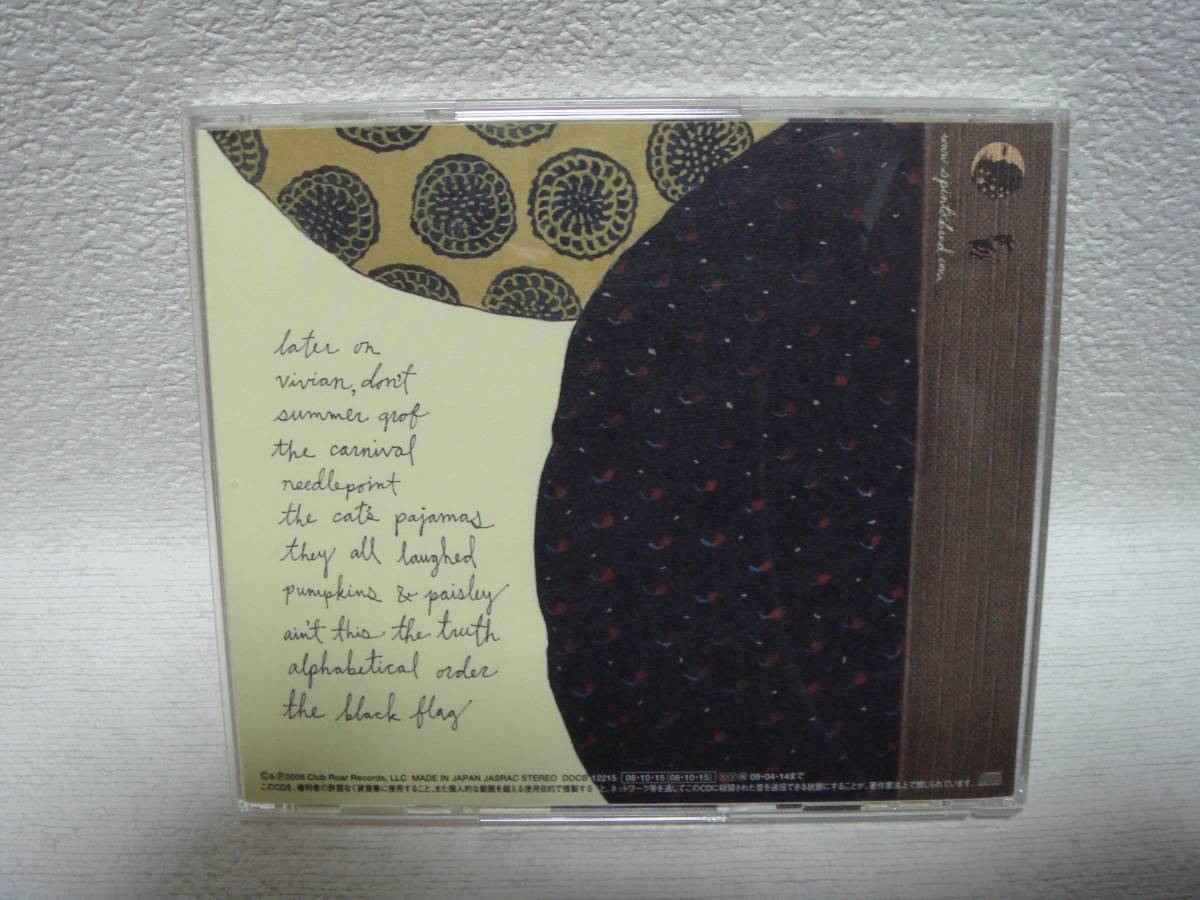 later on
vivian, don't
summer grof
the carnival
needlepoint
the cat's pajamas
they all laughed
pumpkins & paisley
ain't this the truth
alphabetical order
the black flag
©&Ⓟ2008 Club Roar Records, LLC MADE IN JAPAN JASRAC STEREO DDCB 12215 08・10・15 (08・10・15) 09・04・14まで
このCDを、権利者の許諾なく賃貸業に使用すること、また個人的な範囲を超える使用目的で複製すること、ネットワーク等を通じてこのCDに収録された音を送信できる状態にすることが、著作権法上で禁じられています。